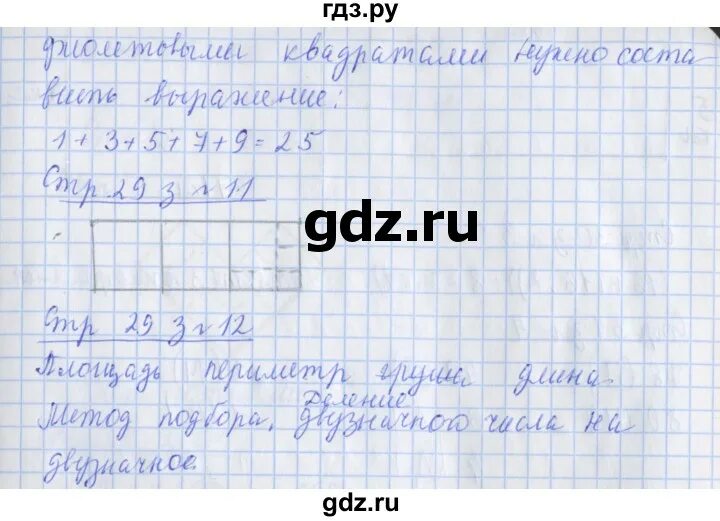 гдз.ру
фиолетовыми квадратами нужно соста
вить выражение:
1+3+5+7+9=25
Стр 29 з № 11
gdz.ru
Стр 29 з № 12
Площадь периметр груша длина.
Метод подбора. Деление двузначного числа на
двузначное.
gdz.ru